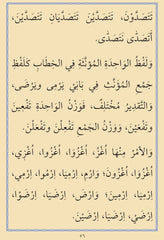 تَتَصَدَّوْنَ، تَتَصَدَّيْنَ تَتَصَدَّيَانِ تَتَصَدَّيْنَ،
أَتَصَدَّى نَتَصَدَّى.
وَلَفْظُ الْوَاحِدَةِ الْمُؤَنَّثَةِ فِي الْخِطَابِ كَلَفْظِ
جَمْعِ الْمُؤَنَّثِ فِي بَابَيْ يَرْمِي وَيَرْضَى،
وَالتَّقْدِيرُ مُخْتَلِفٌ، فَوَزْنُ الْوَاحِدَةِ تَفْعِينَ
وَتَفْعَيْنَ، وَوَزْنُ الْجَمْعِ تَفْعِلْنَ وَتَفْعَلْنَ.
وَالْأَمْرُ مِنْهَا اُغْزُ، اُغْزُوَا، اُغْزُوا، اُغْزِي،
اُغْزُوَا، اُغْزُونَ؛ وَارْمِ، اِرْمِيَا، اِرْمُوا، اِرْمِي،
اِرْمِيَا، اِرْمِينَ؛ وَارْضَ، اِرْضَيَا، اِرْضَوْا،
اِرْضَيْ، اِرْضَيَا، اِرْضَيْنَ.